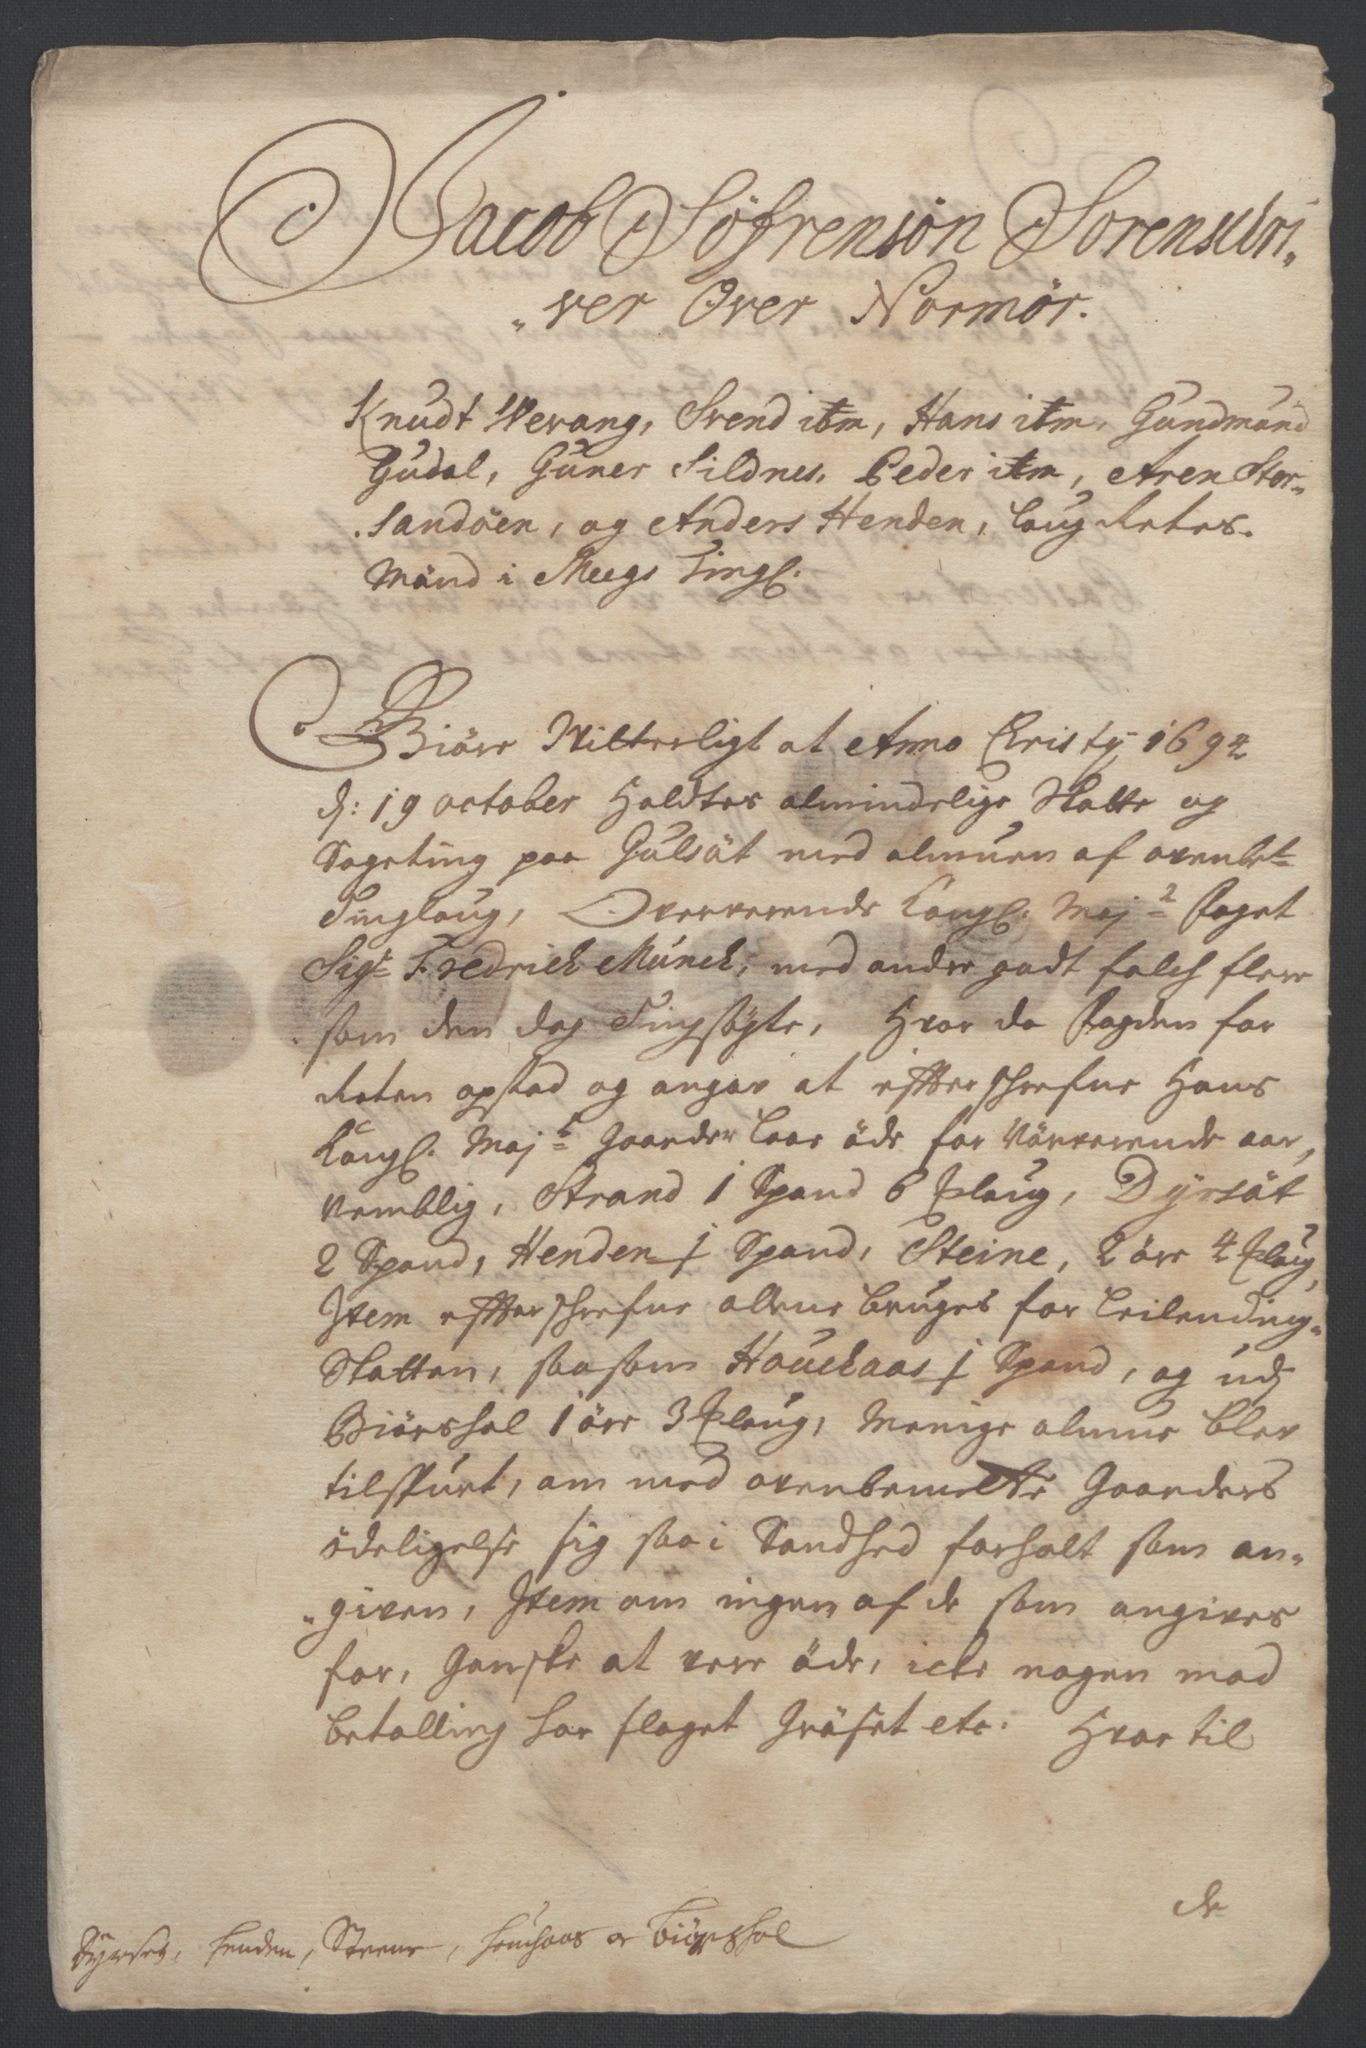 Jacob Söfrensön Sorenskri„
„ver Over Normör.
Knudt Werang, Svend itm, Hans itm, Gundmund
Gudal, Guner Sildnes, Peder itm, Aren Stor„
Sandöen, og Anders Henden, laug Retes
Mänd i Meegs Tingl.
Giöre Witterligt at Anno Christy 1694
d: 19 october Holdtes almindelige Skatte og
Sageting paa Gulsät med almuen af ovenbete
Tinglaug, Oververende Kongl. Maj Foget
Sigr Fredrich Munch, med andre godt folch flere
som den dag Tingsögte, Hvor da Fogden for
Reten opstod og angav at effterschrefne Hans
Kongl. Maj Gaarder laae öde for närverende aar,
nemblig, Strand 1 Spand 6 Mlaug, Dyrsät
2 Spand, Henden j Spand, Steine, 2 öre 4 Mlaug,
Item effterschrefne allene bruges for leilending„
Skatten, saasom Houchaas j Spand, og udj
Biörshol 1 öre 3 Mlaug, Menige almue blev
tilspurt, om med ovenbemelte Gaarders
ödeligelse sig saa i Sandhed forholt som an„
„given, Item om ingen af de som angives
for, Ganske at vere öde, icke nogen mod
betalling har slaget Gräset etc: Hvor til
de
Dyrset, henden, Steene, houchaas oc Biörshol